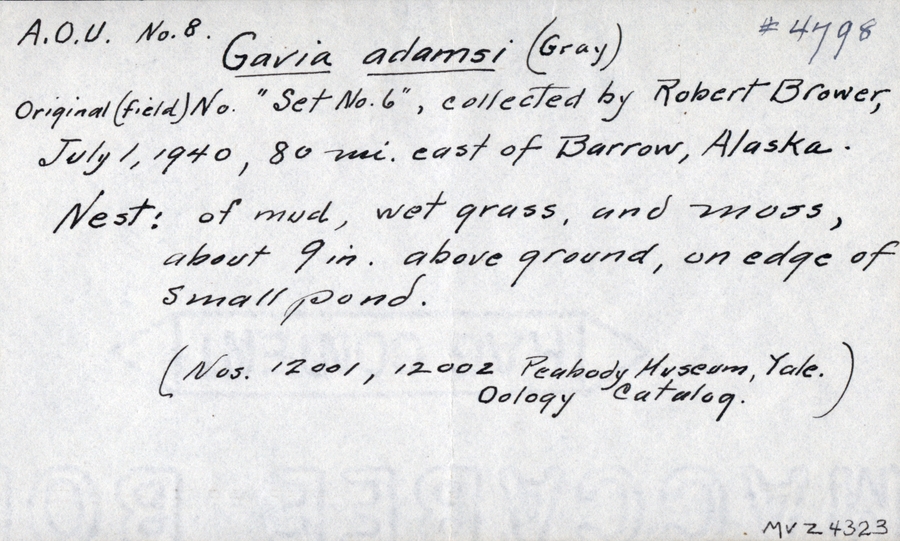 A.O.U. No. 8.
# 4798
Gavia adamsi (Gray)
Original (field) No. "Set No. 6", collected by Robert Brower,
July 1, 1940, 80 mi. east of Barrow, Alaska.
Nest: of mud, wet grass, and moss,
about 9 in. above ground, on edge of
small pond.
(Nos. 12001, 12002 Peabody Museum, Yale.
Oology Catalog.)
MVZ 4323